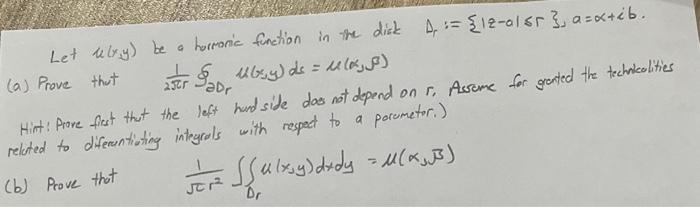 Let u(x,y) be a harmonic function in the disk Δr := {|z-a| ≤ r}, a = α+ib.
(a) Prove that 1/2πr ∮∂Dr u(x,y) ds = u(α,β)
Hint: Prove first that the left hand side does not depend on r. Assume for granted the technicalities
related to diferentiating integrals with respect to a parameter.)
(b) Prove that 1/πr² ∬Dr u(x,y) dxdy = u(α,β)